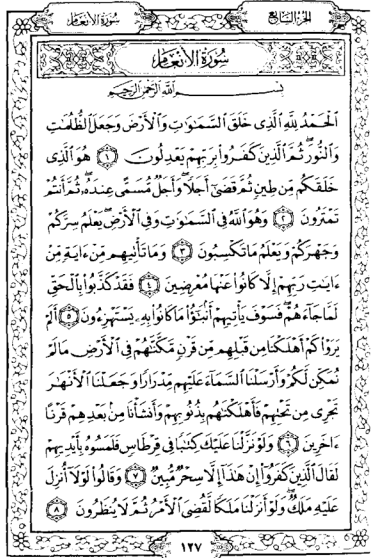 سُورَةُ الأَنْعَام
الجزء السابع
سُورَةُ الأَنْعَام
بِسْمِ اللَّهِ الرَّحْمَٰنِ الرَّحِيمِ
الْحَمْدُ لِلَّهِ الَّذِى خَلَقَ السَّمَٰوَٰتِ وَالْأَرْضَ وَجَعَلَ الظُّلُمَٰتِ
وَالنُّورَ ثُمَّ الَّذِينَ كَفَرُوا۟ بِرَبِّهِمْ يَعْدِلُونَ ١ هُوَ الَّذِى
خَلَقَكُم مِّن طِينٍ ثُمَّ قَضَىٰٓ أَجَلًا وَأَجَلٌ مُّسَمًّى عِندَهُۥ ثُمَّ أَنتُمْ
تَمْتَرُونَ ٢ وَهُوَ اللَّهُ فِى السَّمَٰوَٰتِ وَفِى الْأَرْضِ يَعْلَمُ سِرَّكُمْ
وَجَهْرَكُمْ وَيَعْلَمُ مَا تَكْسِبُونَ ٣ وَمَا تَأْتِيهِم مِّنْ ءَايَةٍ مِّنْ
ءَايَٰتِ رَبِّهِمْ إِلَّا كَانُوا۟ عَنْهَا مُعْرِضِينَ ٤ فَقَدْ كَذَّبُوا۟ بِالْحَقِّ
لَمَّا جَآءَهُمْ فَسَوْفَ يَأْتِيهِمْ أَنۢبَٰٓؤُا۟ مَا كَانُوا۟ بِهِۦ يَسْتَهْزِءُونَ ٥ أَلَمْ
يَرَوْا۟ كَمْ أَهْلَكْنَا مِن قَبْلِهِم مِّن قَرْنٍ مَّكَّنَّٰهُمْ فِى الْأَرْضِ مَا لَمْ
نُمَكِّن لَّكُمْ وَأَرْسَلْنَا السَّمَآءَ عَلَيْهِم مِّدْرَارًا وَجَعَلْنَا الْأَنْهَٰرَ
تَجْرِى مِن تَحْتِهِمْ فَأَهْلَكْنَٰهُم بِذُنُوبِهِمْ وَأَنشَأْنَا مِنۢ بَعْدِهِمْ قَرْنًا
ءَاخَرِينَ ٦ وَلَوْ نَزَّلْنَا عَلَيْكَ كِتَٰبًا فِى قِرْطَاسٍ فَلَمَسُوهُ بِأَيْدِيهِمْ
لَقَالَ الَّذِينَ كَفَرُوٓا۟ إِنْ هَٰذَآ إِلَّا سِحْرٌ مُّبِينٌ ٧ وَقَالُوا۟ لَوْلَآ أُنزِلَ
عَلَيْهِ مَلَكٌ وَلَوْ أَنزَلْنَا مَلَكًا لَّقُضِىَ الْأَمْرُ ثُمَّ لَا يُنظَرُونَ ٨
١٢٧